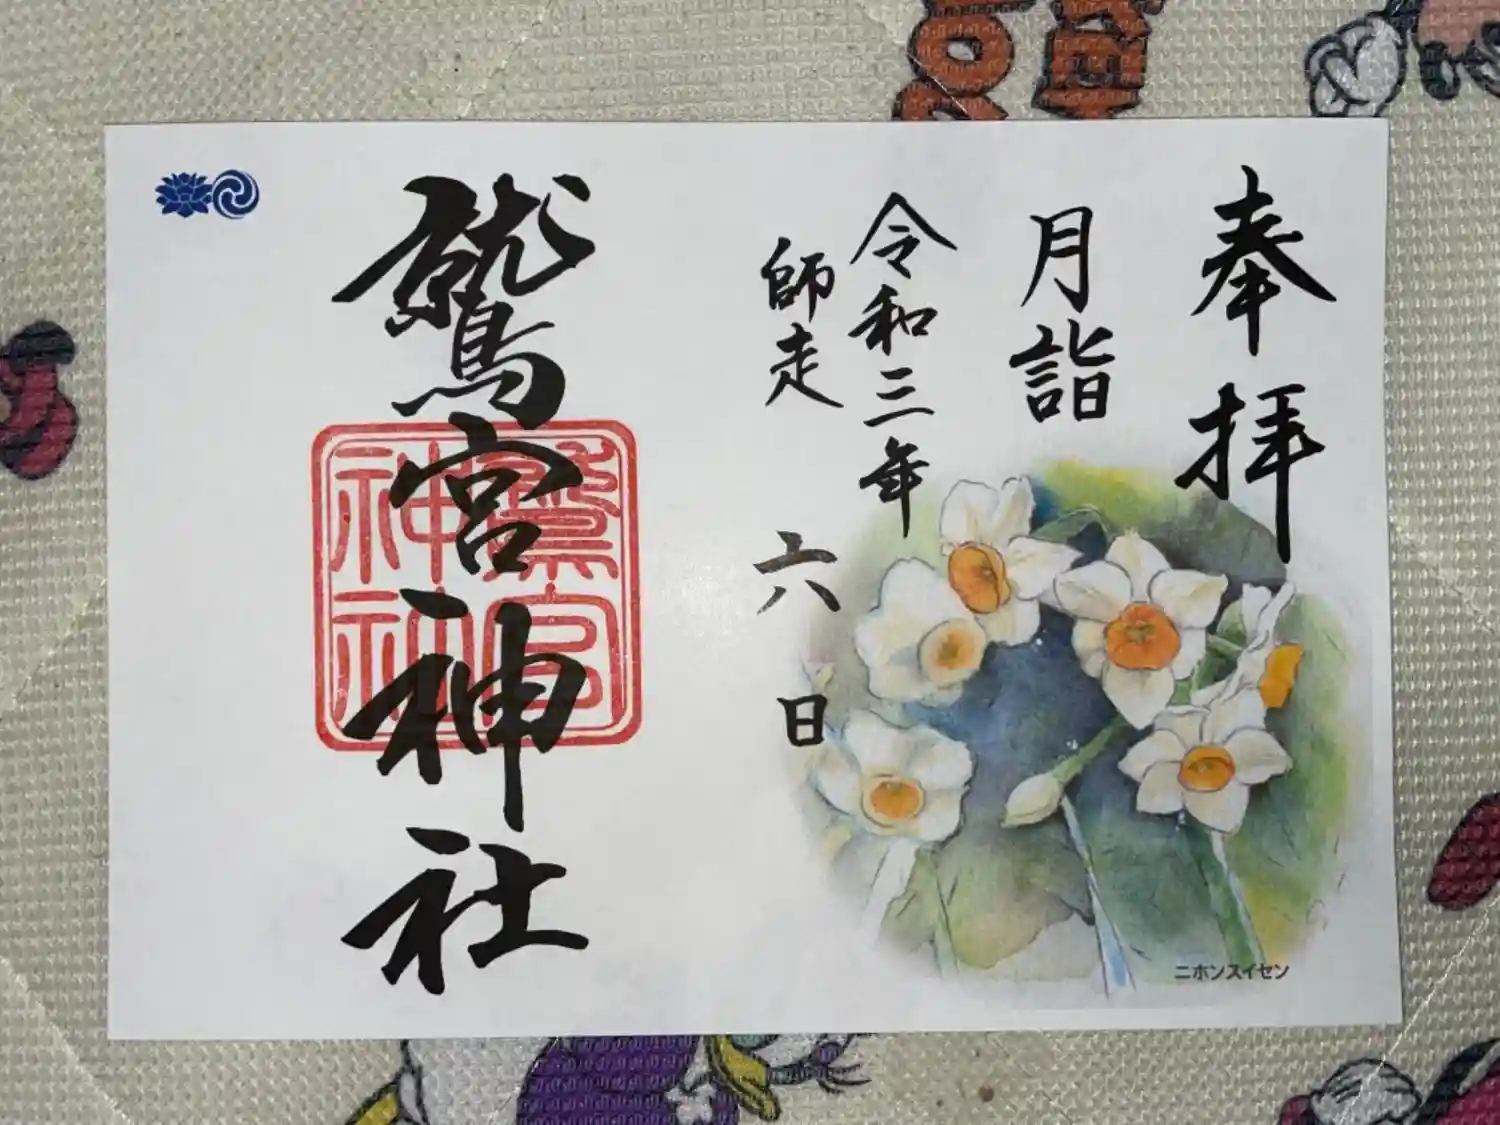 奉拝
月詣
令和三年
師走 六 日
鷲宮神社
鷲宮
神社
ニホンスイセン